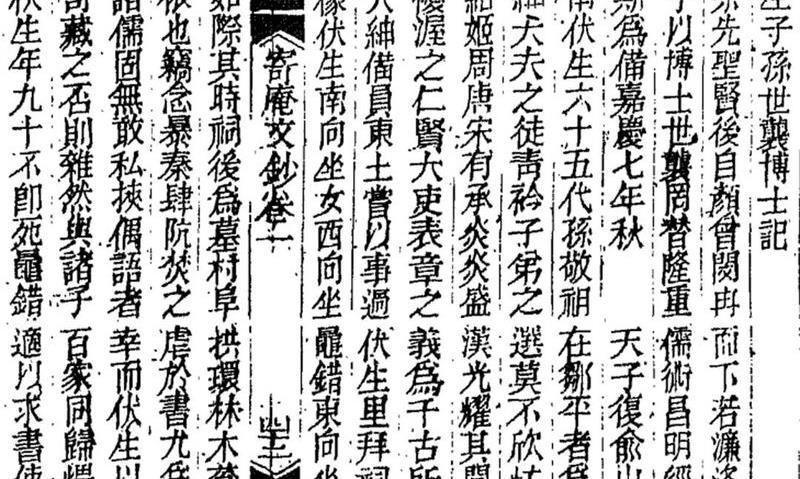 生子孫世襲博士記
先聖賢後自顏曾閔冉而下若濂洛
以博士世襲罔替隆重儒術昌明經
為備嘉慶七年秋 天子復俞
伏生六十五代孫敬祖在鄒平者
大夫之徒青衿子弟之選莫不欣
姬周唐宋有承炎炎盛漢光耀其
渥之仁賢大吏表章之義為千古所
紳備員東土嘗以事過伏生里拜祠
像伏生南向坐女西向坐鼂錯東向坐
寄庵文鈔卷一 四十三
際其時祠後為墓村阜拱環林木
也竊念暴秦肆阬焚之虐於書尤
諸儒固無敢私挾偶語者幸而伏生以
藏之否則雜然與諸子百家同歸
伏生年九十不即死鼂錯適以求書使